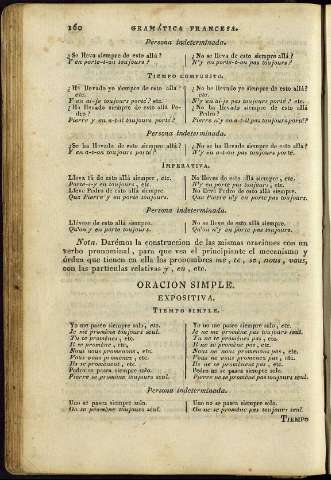 160 GRAMÁTICA FRANCESA.
Persona indeterminada.
¿Se lleva siempre de esto allá? ¿No se lleva de esto siempre allá?
Y en porte-t-on toujours? N'y en porte-t-on pas toujours?
TIEMPO COMPUESTO.
¿He llevado yo siempre de esto allá? ¿No he llevado yo siempre de esto allá?
etc. etc.
Y en ai-je toujours porté? etc. N'y en ai-je pas toujours porté? etc.
¿Ha llevado siempre de esto allá Pe- ¿No ha llevado siempre de esto allá
dro? Pedro?
Pierre y en a-t-il toujours porté? Pierre n'y en a-t-il pas toujours porté?
Persona indeterminada.
¿Se ha llevado de esto siempre allá? ¿No se ha llevado de esto siempre allá?
Y en a-t-on toujours porté? N'y en a-t-on pas toujours porté.
IMPERATIVA.
Lleva tú de esto allá siempre, etc. No lleves de esto allá siempre, etc.
Porte-s-y en toujours, etc. N'y en porte pas toujours, etc.
Lleve Pedro de esto allá siempre No lleve Pedro de esto allá siempre.
Que Pierre y en porte toujours. Que Pierre n'y en porte pas toujours.
Persona indeterminada.
Llévese de esto allá siempre. No se lleve de esto siempre.
Qu'on y en porte toujours. Qu'on n'y en porte pas toujours.
Nota. Darémos la construccion de las mismas oraciones con un
verbo pronominal, para que vea el principiante el mecanismo y
órden que tienen en ella los pronombres me, te, se, nous, vous,
con las partículas relativas y, en, etc.
ORACION SIMPLE.
EXPOSITIVA.
TIEMPO SIMPLE.
Yo me paseo siempre solo, etc. Yo no me paseo siempre solo, etc.
Je me promène toujours seul. Je ne me promène pas toujours seul.
Tu te promènes, etc. Tu ne te promènes pas, etc.
Il se promène, etc. Il ne se promène pas, etc.
Nous nous promenons, etc. Nous ne nous promenons pas, etc.
Vous vous promenez, etc. Vous ne vous promenez pas, etc.
Ils se promènent, etc. Ils ne se promènent pas, etc.
Pedro se pasea siempre solo. Pedro no se pasea siempre solo.
Pierre se promène toujours seul. Pierre ne se promène pas toujours seul.
Persona indeterminada.
Uno se pasea siempre solo. Uno no se pasea siempre solo.
On se promène toujours seul. On ne se promène pas toujours seul.
TIEMPO